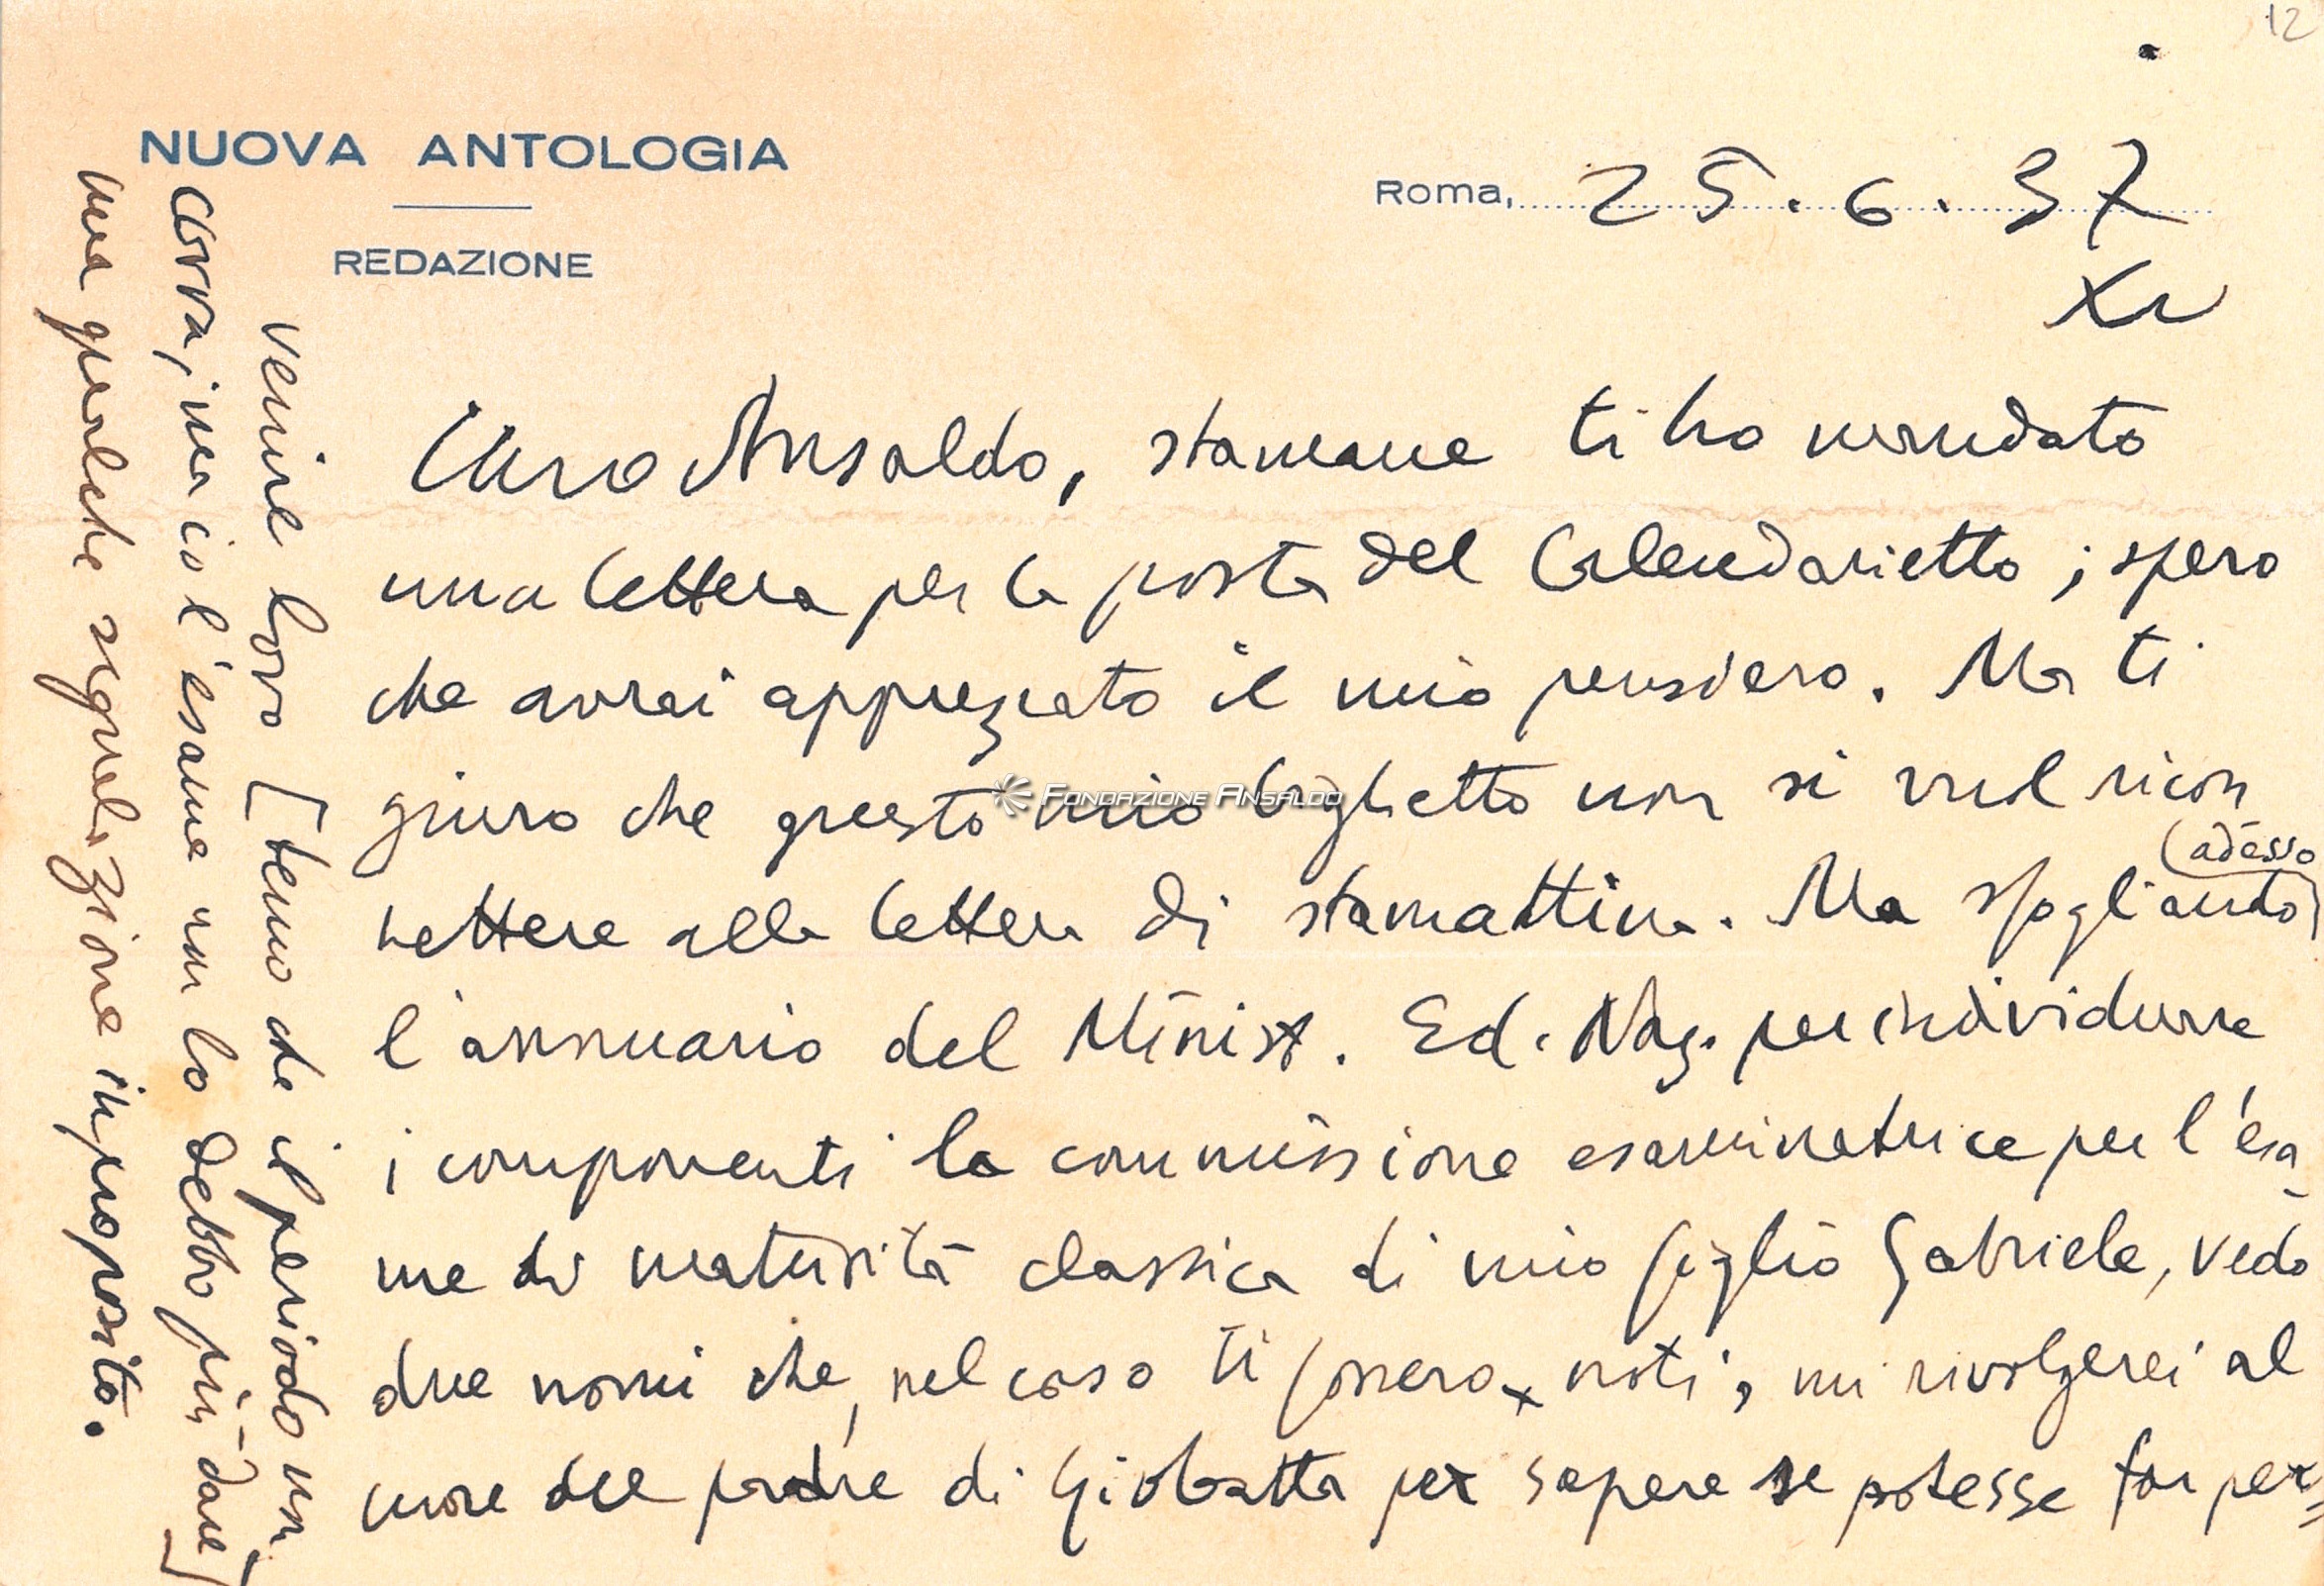 12
NUOVA ANTOLOGIA
REDAZIONE
Roma, 25.6.37
XV
Caro Ansaldo, stamane ti ho mandato
una lettera per la posta del Calendarietto; spero
che avrai apprezzato il mio pensiero. Ma ti
giuro che questo mio biglietto non si vuol ricon
nettere alla lettera di stamattina. Ma sfogliando
(adesso)
l'annuario del Minist. Ed. Naz. per individuare
i componenti la commissione esaminatrice per l'esa
me di maturità classica di mio figlio Gabriele, vedo
due nomi che, nel caso ti fossero noti, mi rivolgerei al
cuore del padre di Giobatta per sapere se potesse far per=
venire loro [temo che il periodo non
corra, ma io l'esame non lo debbo più dare]
una qualche segnalazione in proposito.
FONDAZIONE ANSALDO